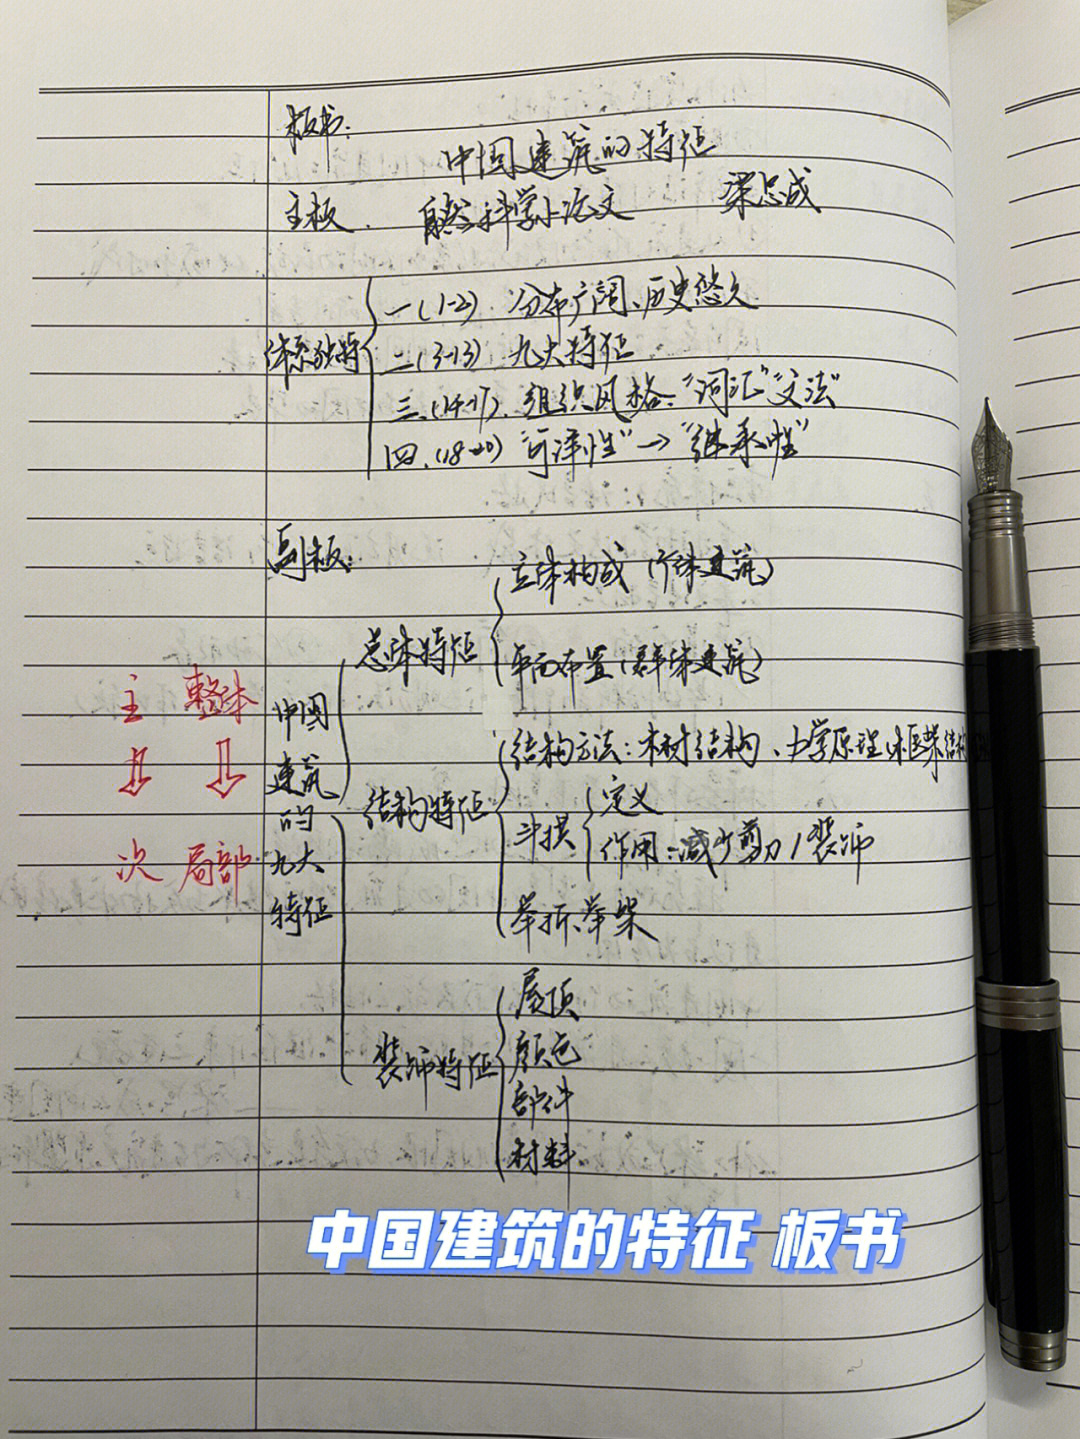 板书:
中国建筑的特征
主板. 自然科学小论文 梁思成
体系独特
一(1-2) 分布广阔、历史悠久
二(3-13) 九大特征
三.(14-17). 组织风格:"词汇""文法"
四.(18-20) "可译性"→"继承性"
副板:
立体构成(个体建筑)
总体特征
平面布置(群体建筑)
主 整体
⇩ ⇩
次 局部
中国建筑的九大特征
结构方法:木材结构、力学原理、框架结构
结构特征
斗拱
定义
作用:减少剪力/装饰
举折、举架
屋顶
装饰特征
颜色
部件
材料
中国建筑的特征 板书